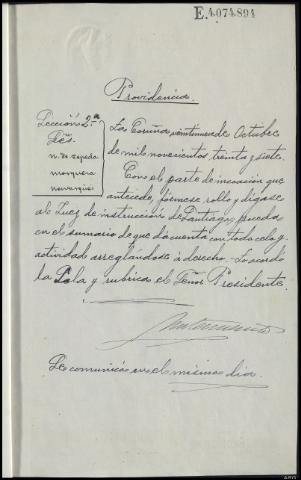 E.4.074.894
Providencia.
Sección 2ª
Sres.
n. de cepeda
mosquera
La Coruña veintinueve de Octubre
de mil novecientos treinta y siete.
Con el parte de incoación que
antecede, fórmese rollo y dígase
al Juez de instrucción de Santiago proceda
en el sumario de que da cuenta con todo celo y
actividad arreglándose a derecho.- Lo acordó
la Sala y rubrica el Señor Presidente.
Se comunicó en el mismo día.